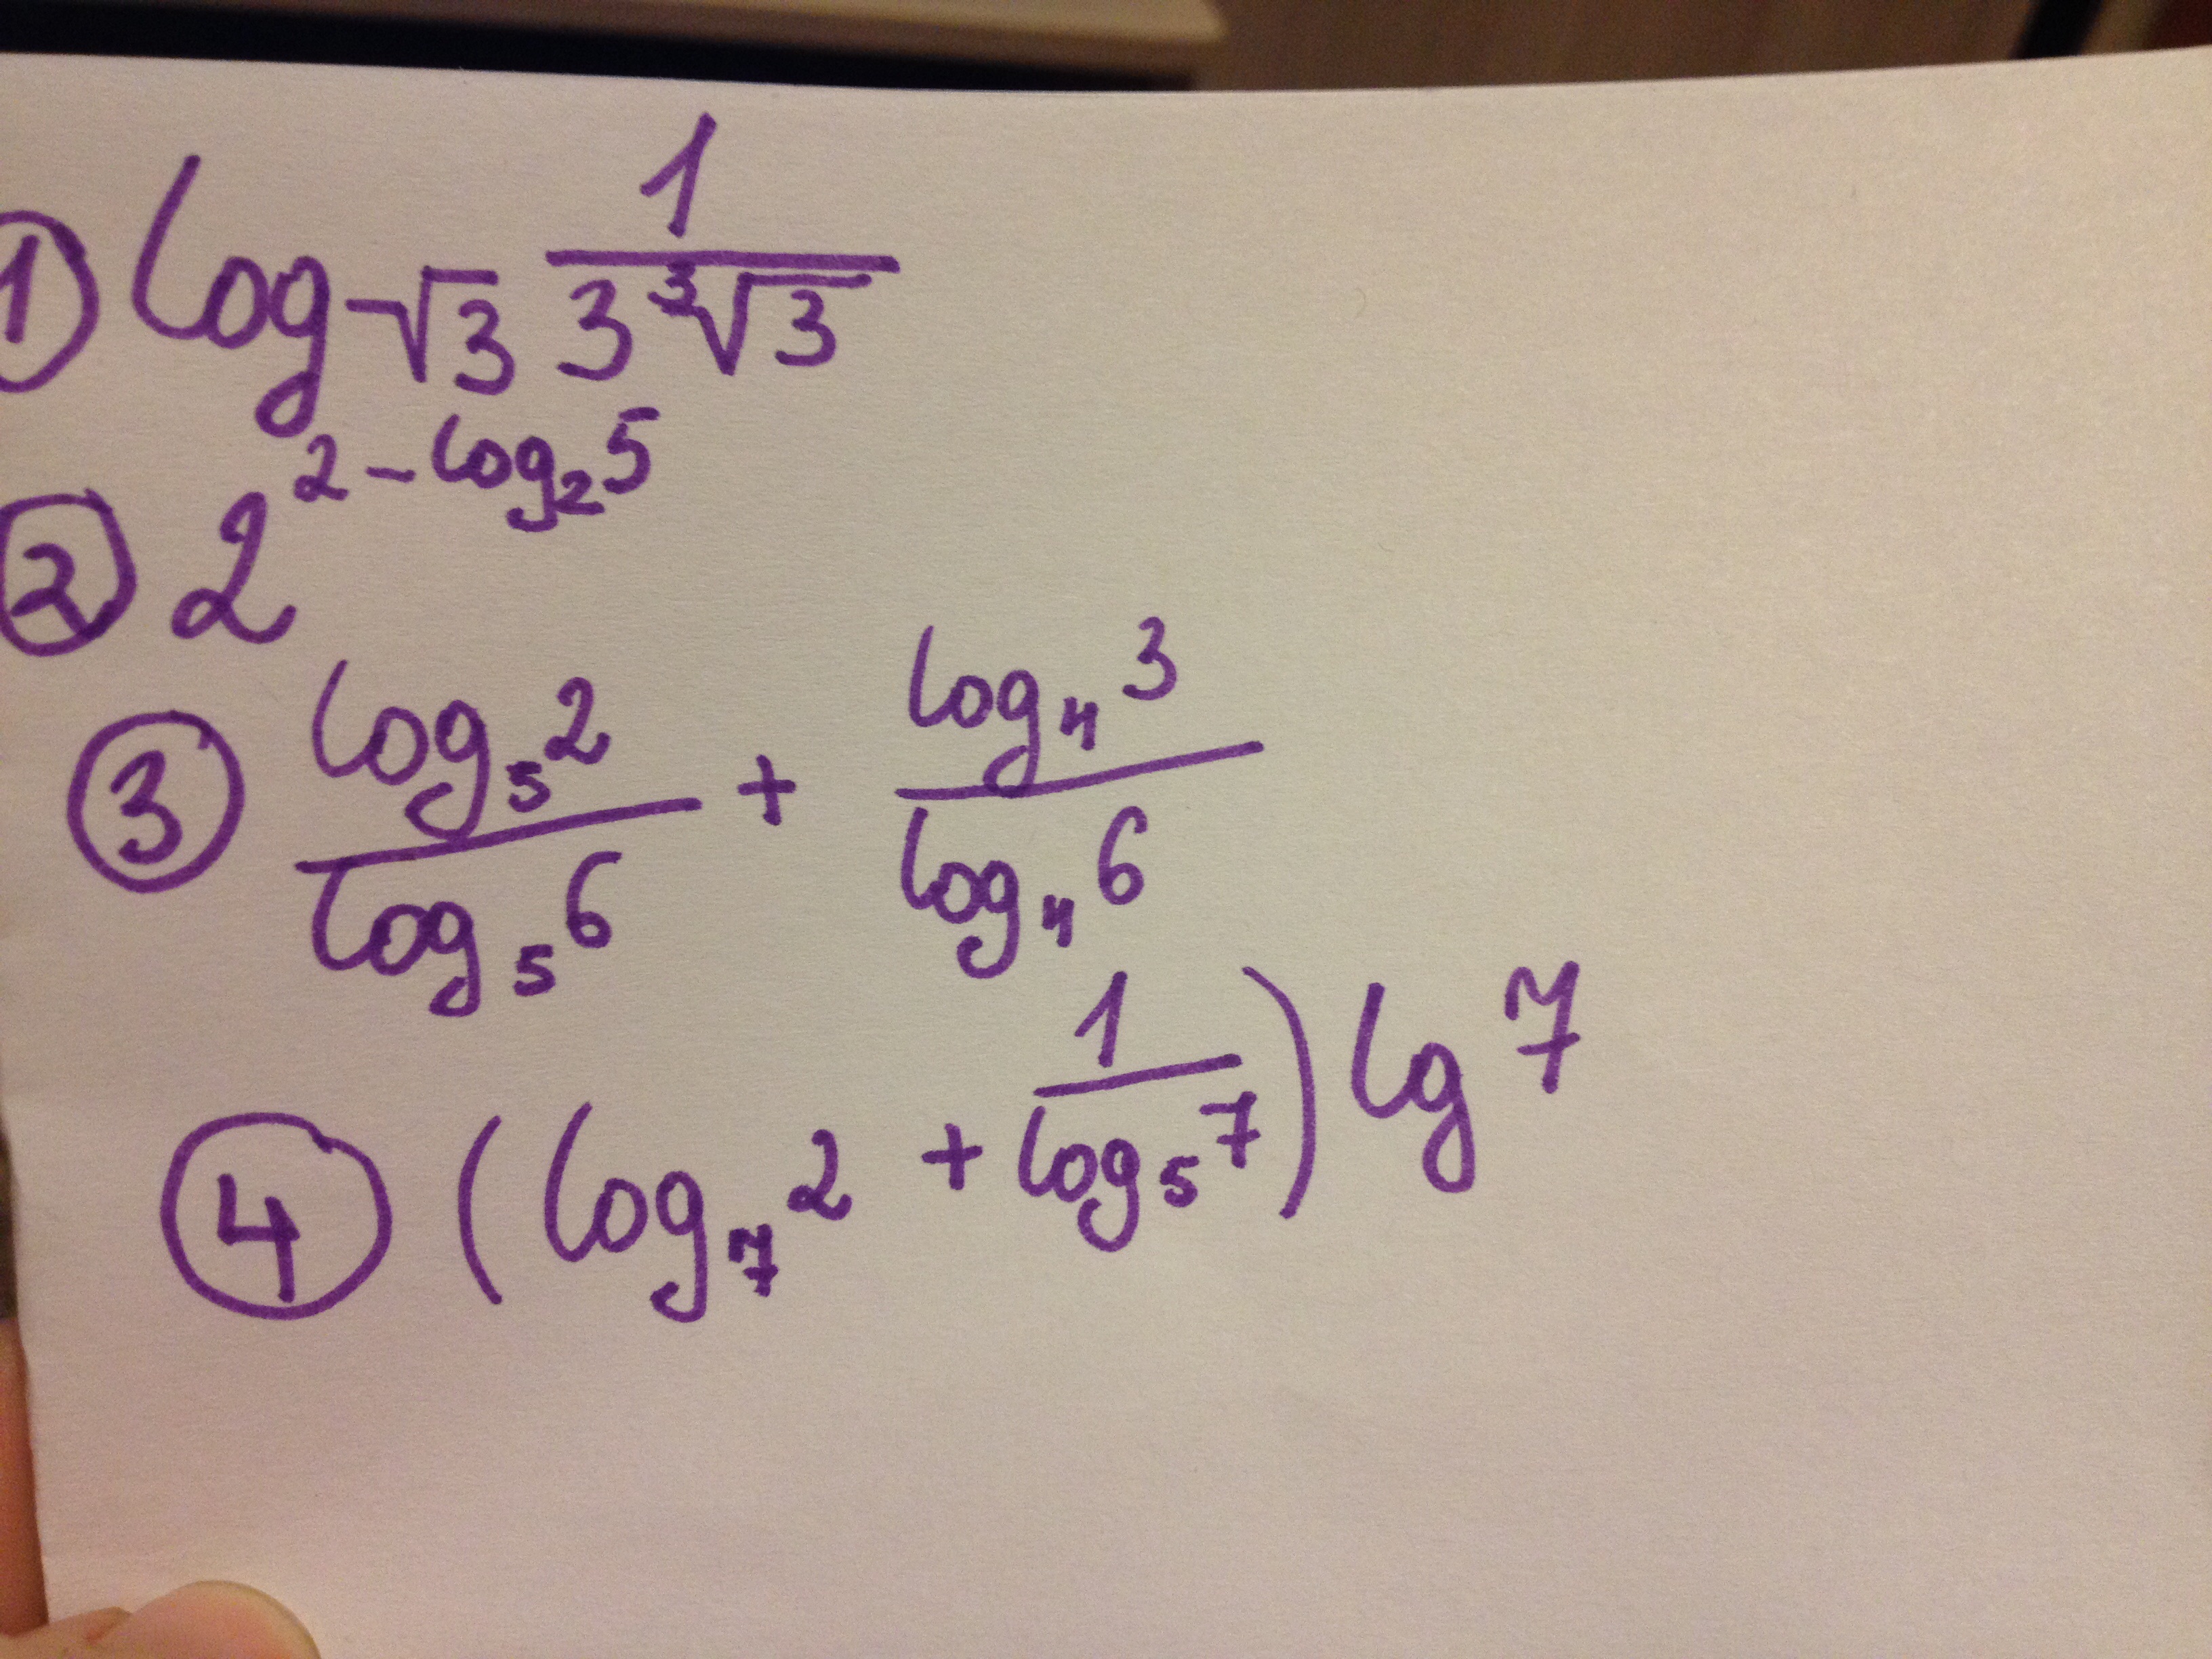 ① log_√3 1/(3∛3)
② 2^(2-log_2 5)
③ (log_5 2)/(log_5 6) + (log_4 3)/(log_4 6)
④ (log_7 2 + 1/(log_5 7)) lg 7